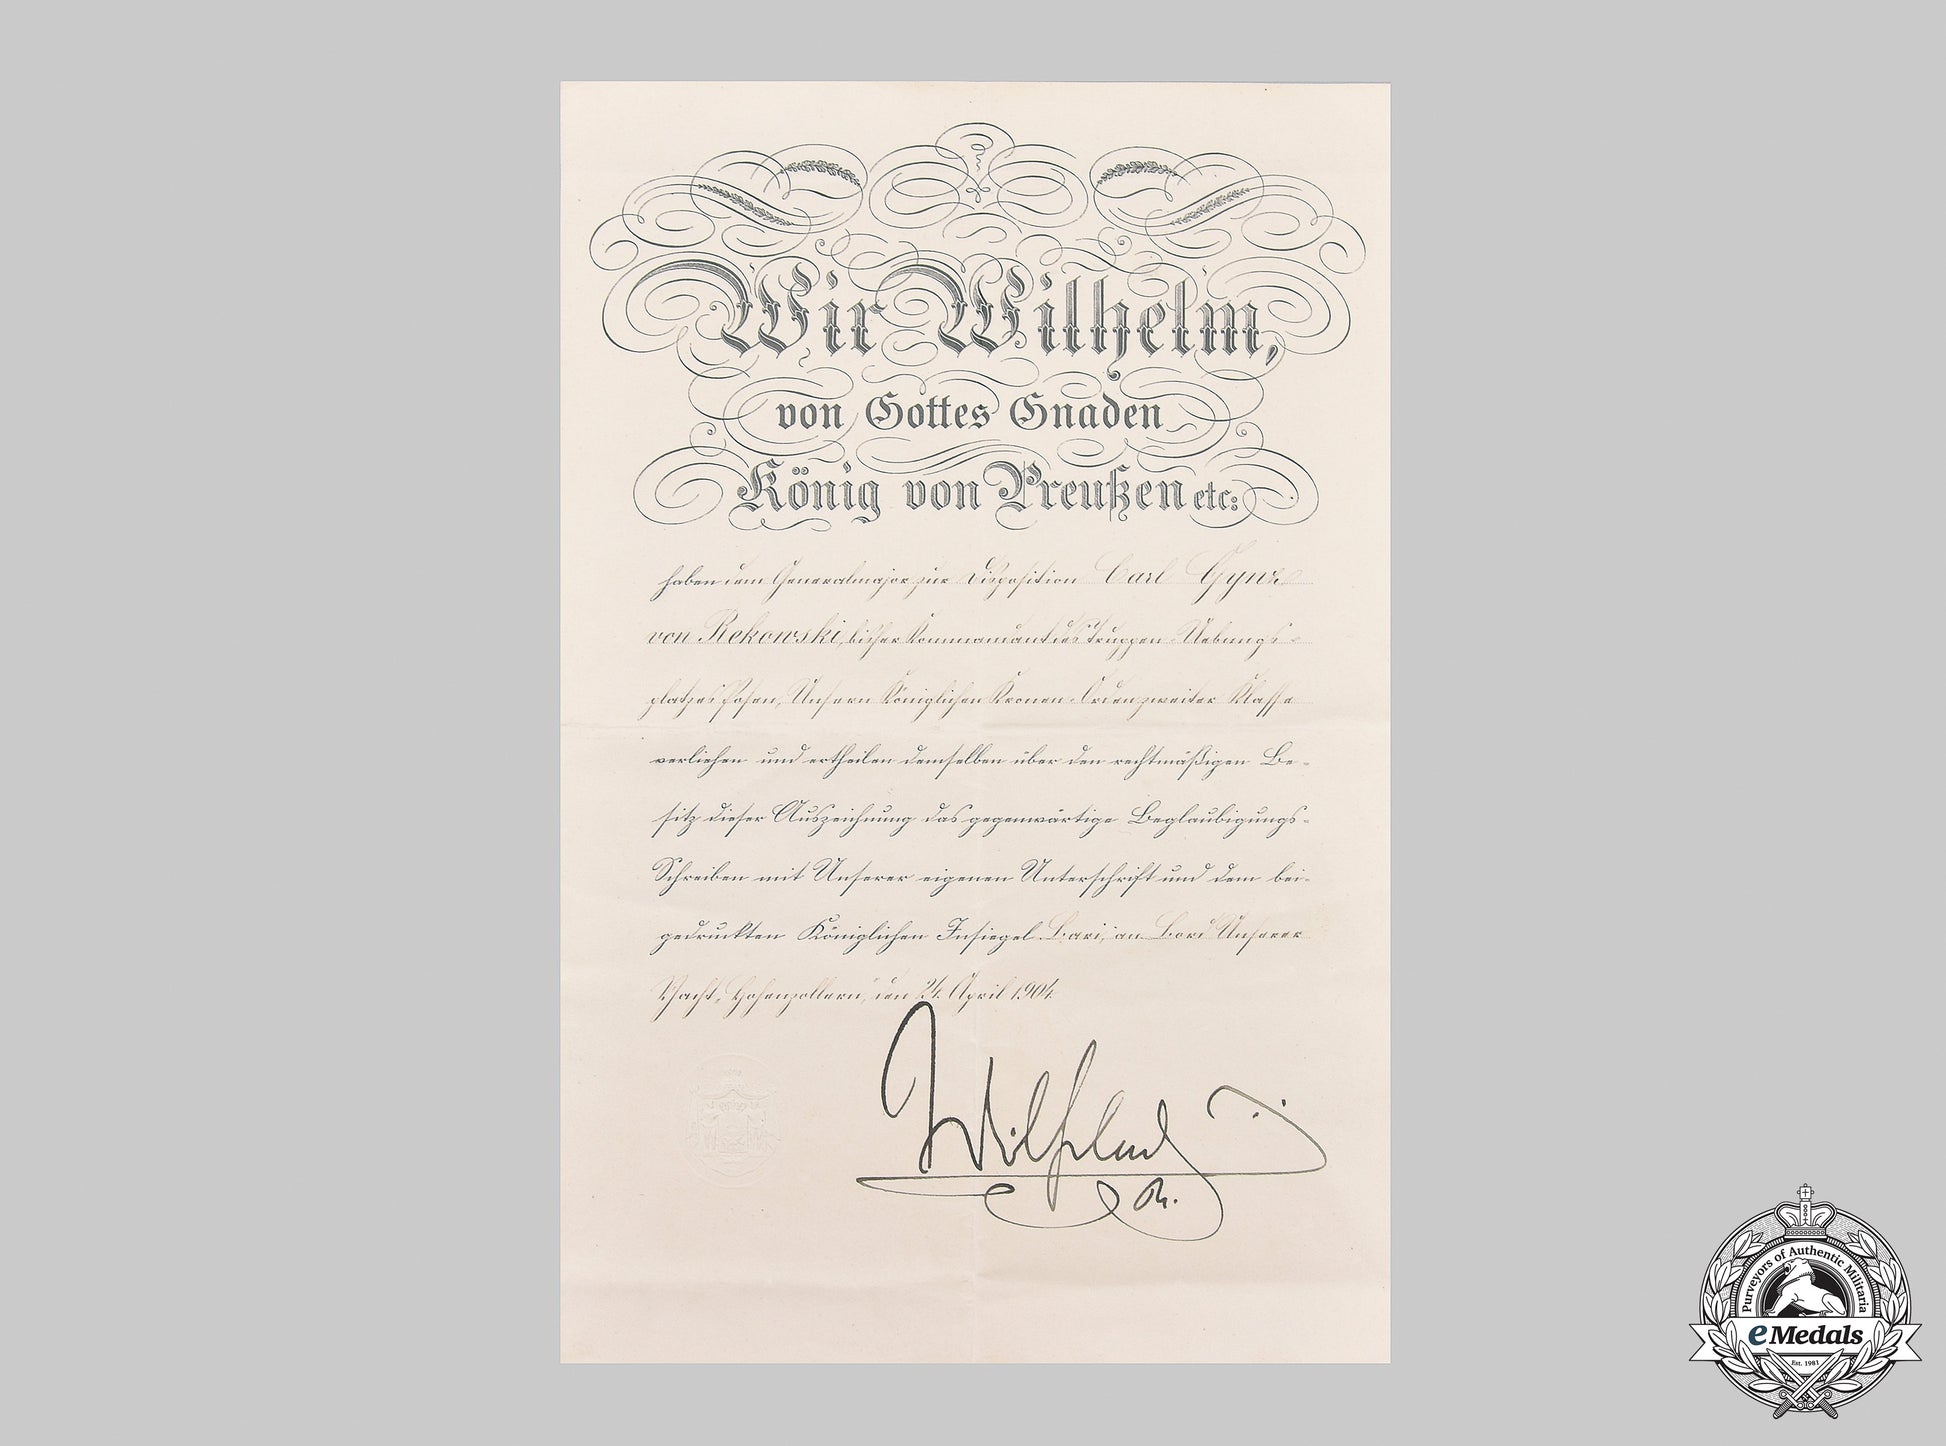 Wir Wilhelm,
von Gottes Gnaden
König von Preußen etc:
haben dem Generalmajor zur Disposition Carl Gynz
von Rekowski, bisher Kommandant des Truppen-Uebungs-
platzes Posen, Unsern Königlichen Kronen-Orden zweiter Klasse
verliehen und ertheilen demselben über den rechtmäßigen Be-
sitz dieser Auszeichnung das gegenwärtige Beglaubigungs-
Schreiben mit Unserer eigenen Unterschrift und dem bei-
gedruckten Königlichen Insiegel. Bari, an Bord Unserer
Yacht „Hohenzollern", den 24. April 1904.
Wilhelm
R.
Purveyors of Authentic Militaria
eMedals
Est. 1983